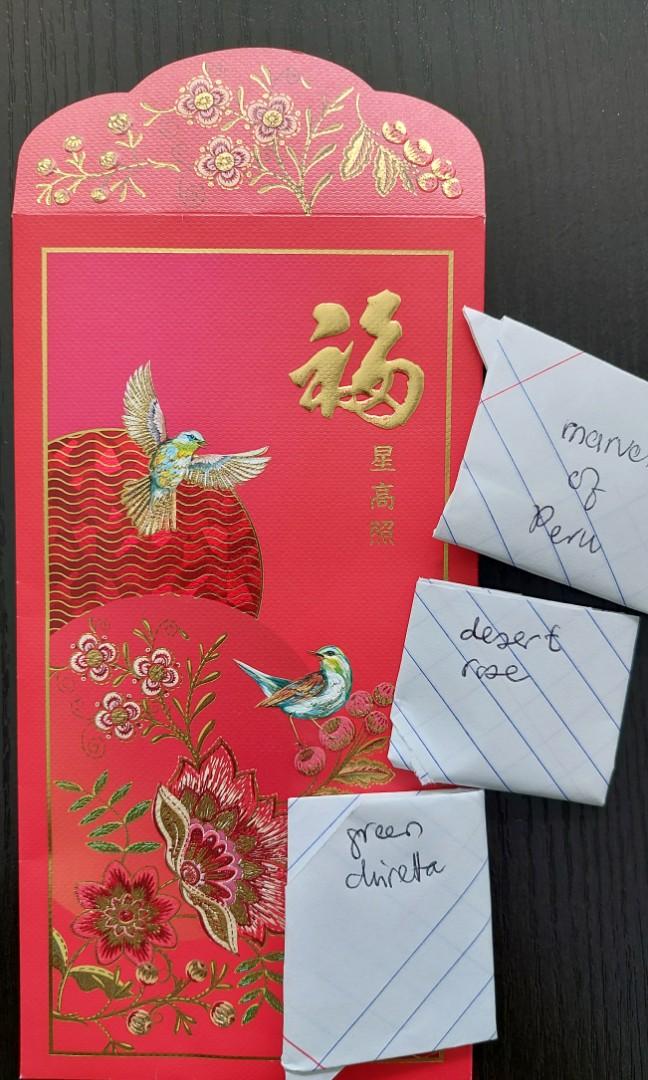 福
星高照
marve
of
Peru
desert
rose
green
chiretta